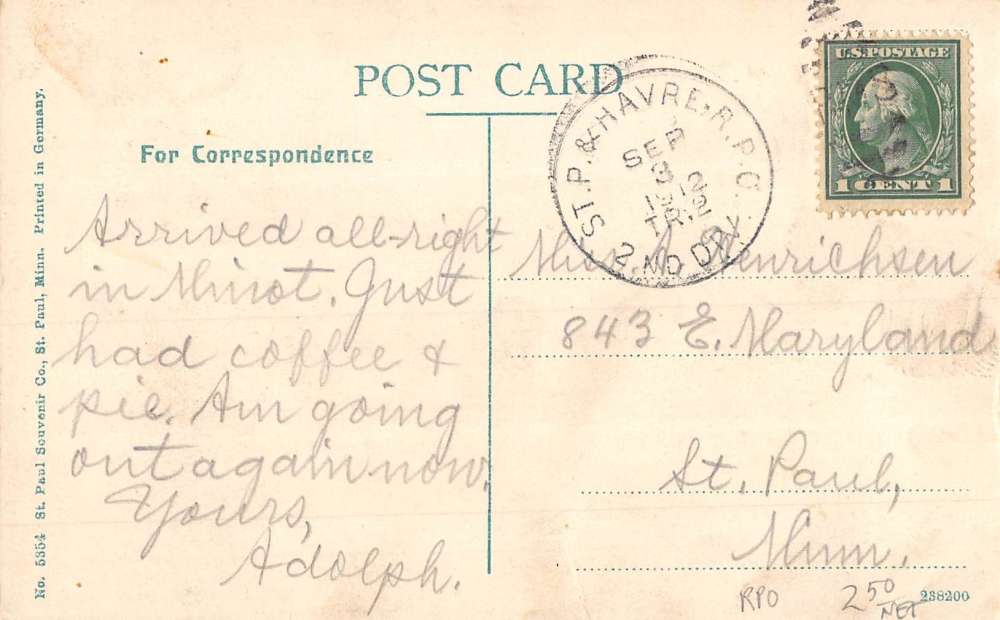 POST CARD
For Correspondence
Arrived all-right
in Minot. Just
had coffee &
pie. Am going
out again now.
Yours,
Adolph.
No. 5354 St. Paul Souvenir Co., St. Paul, Minn. Printed in Germany.
ST. P. & HAVRE. R.P.O.
SEP
3
1912
TR. 2
2ND DIV.
U.S. POSTAGE
1 CENT 1
Miss Henrichsen
843 E. Maryland
St. Paul,
Minn.
RPO
2 50
NET
238200